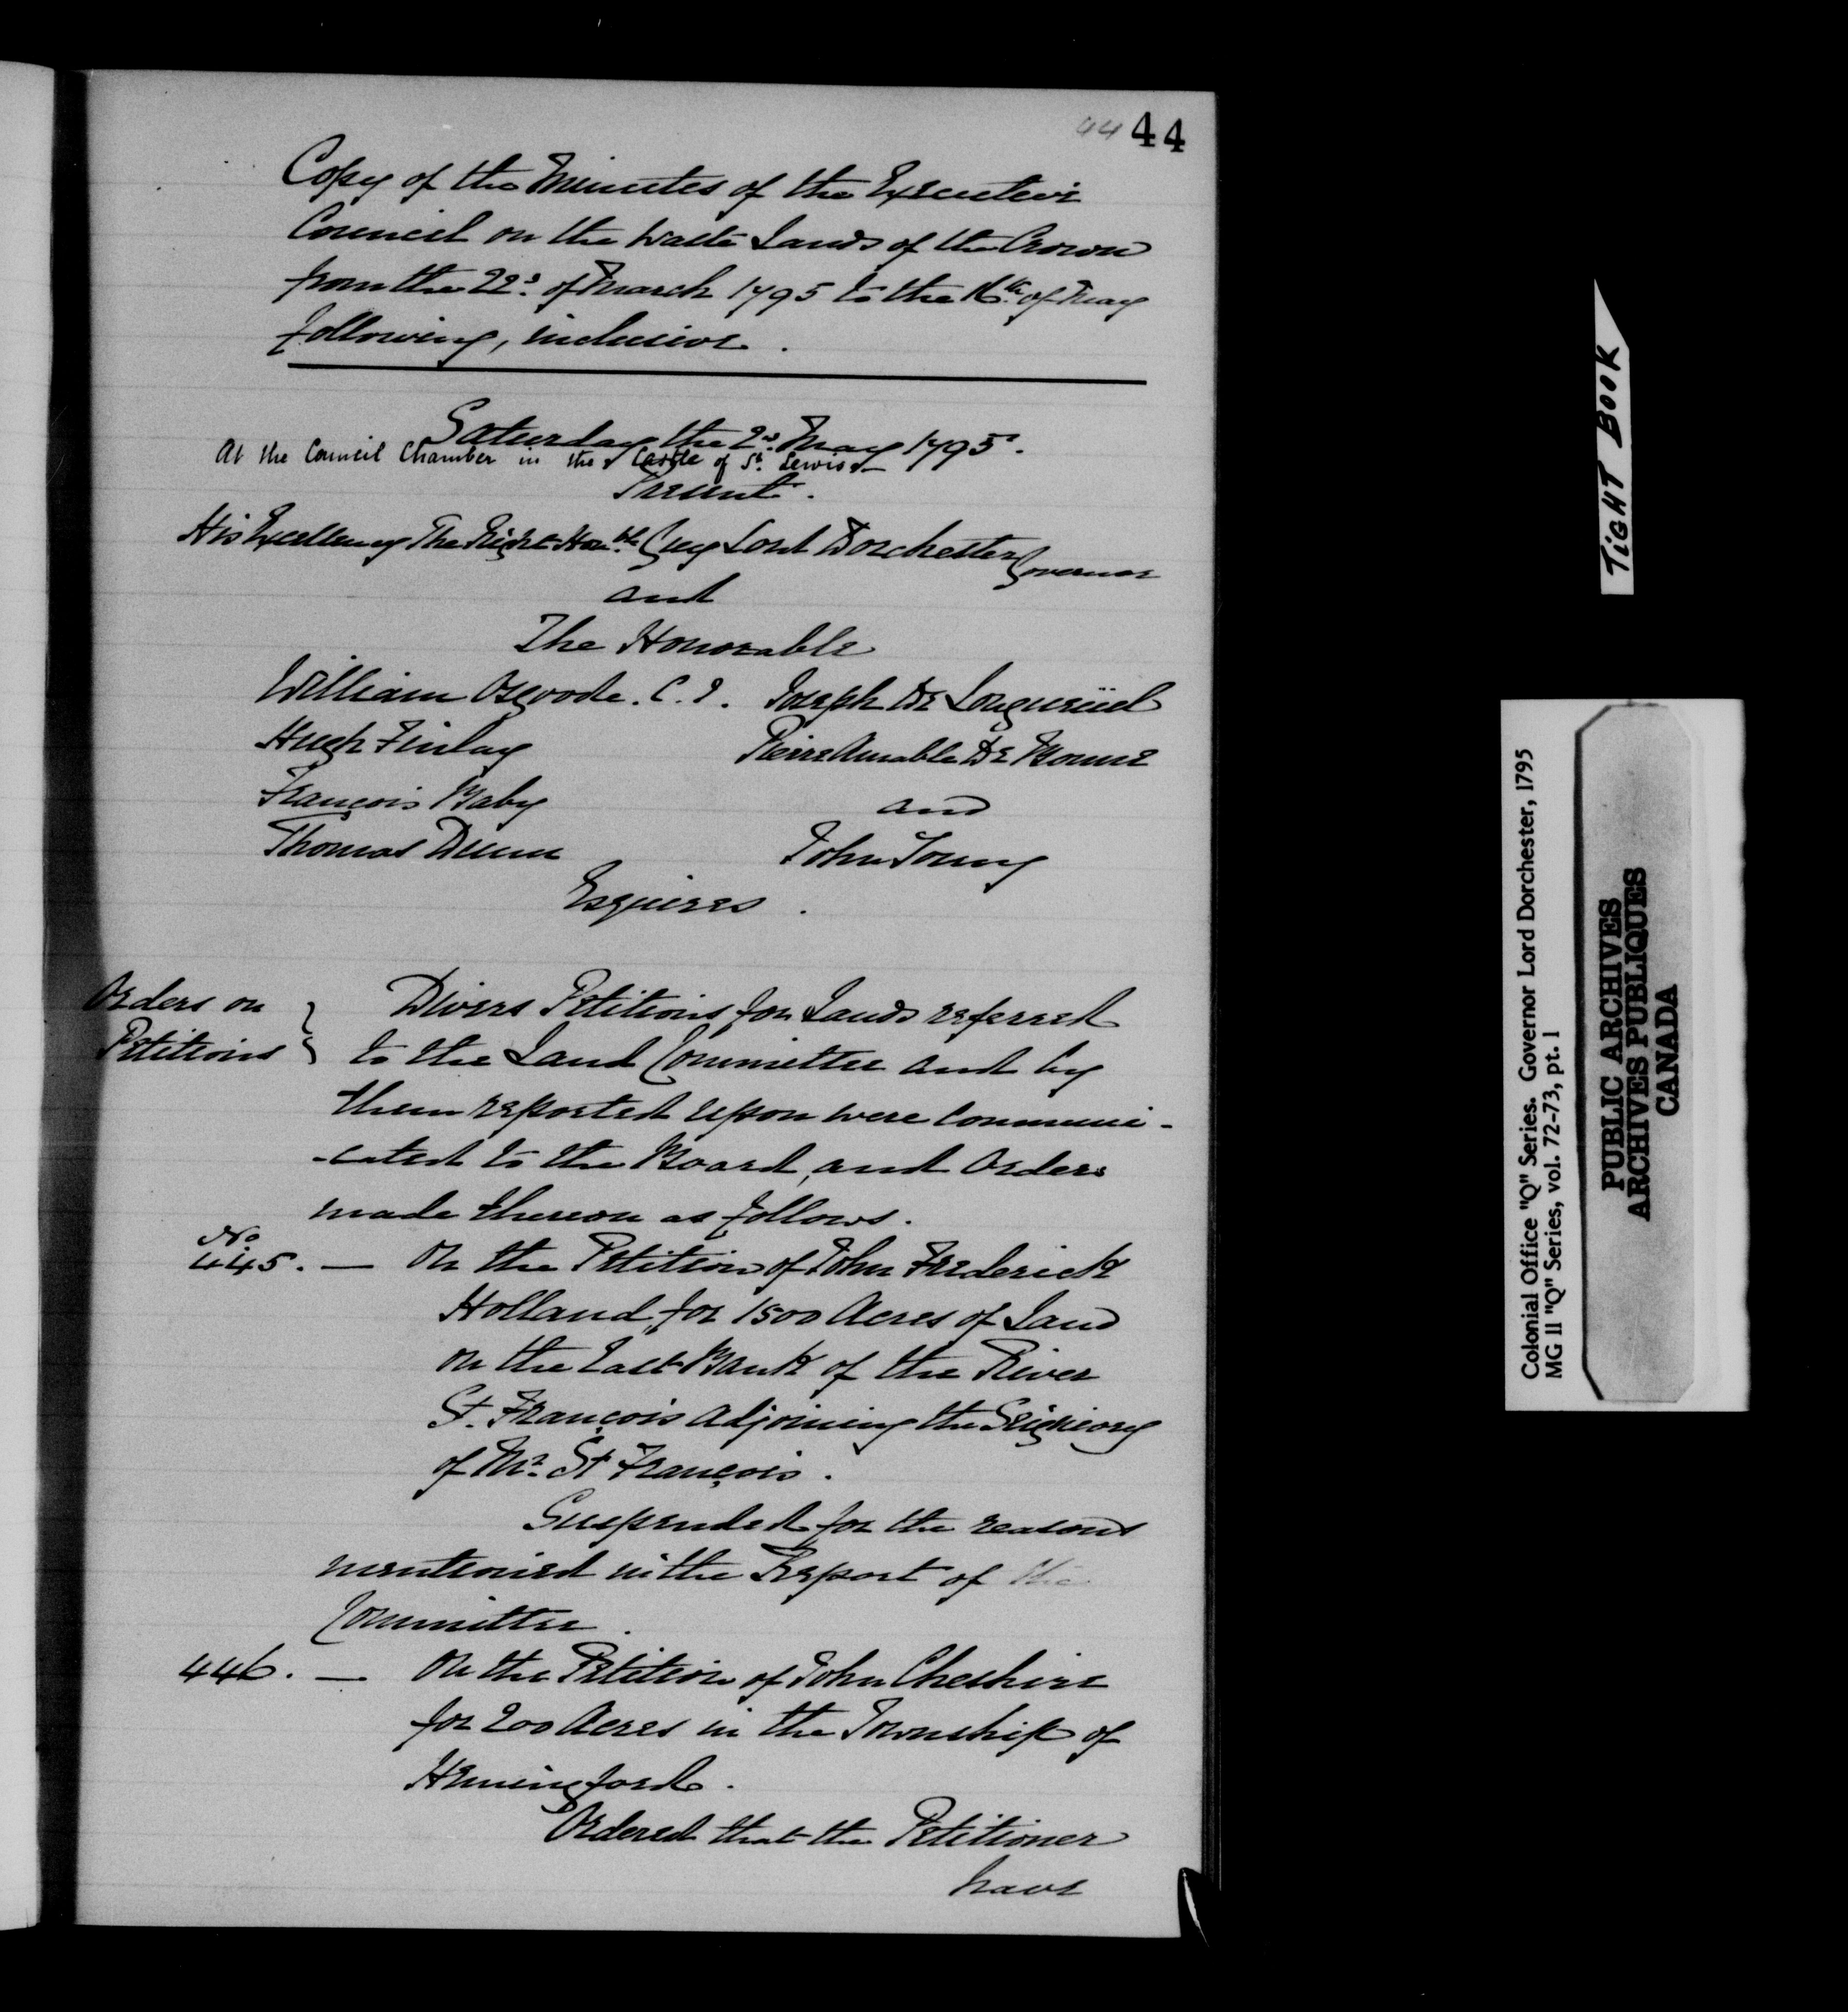 44 44
Copy of the Minutes of the Executive
Council on the Waste Lands of the Crown
from the 22d. of March 1795 to the 16th. of May
following, inclusive.
Saturday the 2d. May 1795.
At the Council Chamber in the Castle of St. Lewis—
Present.
His Excellency The Right Honble. Guy Lord Dorchester Governor
and
The Honorable
William Osgoode. C. J. Joseph De Longueüil
Hugh Finlay Pierre Amable De Bonne
François Baby and
Thomas Dunn John Young
Esquires.
Orders on
Petitions }
Divers Petitions for Lands referred
to the Land Committee and by
them reported upon were communi-
-cated to the Board, and Orders
made thereon as follows.
No
445. — On the Petition of John Frederick
Holland, for 1500 Acres of Land
on the East Bank of the River
St. François adjoining the Seigniory
of Mr. St François.
Suspended for the reasons
mentioned in the Report of the
Committee.
446. — On the Petition of John Cheshire
for 200 Acres in the Township of
Hemingford.
Ordered that the Petitioner
have
TIGHT BOOK
Colonial Office "Q" Series. Governor Lord Dorchester, 1795
MG 11 "Q" Series, vol. 72-73, pt. 1
PUBLIC ARCHIVES
ARCHIVES PUBLIQUES
CANADA